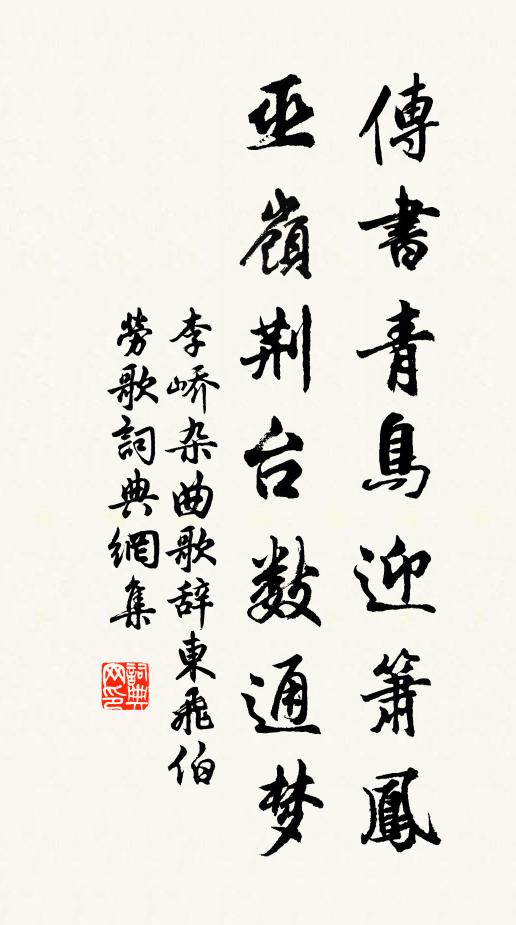 傳書青鳥迎簫鳳
巫嶺荆台数通梦
李嶠杂曲歌辞東飛伯
劳歌詞典網集
詞典网印